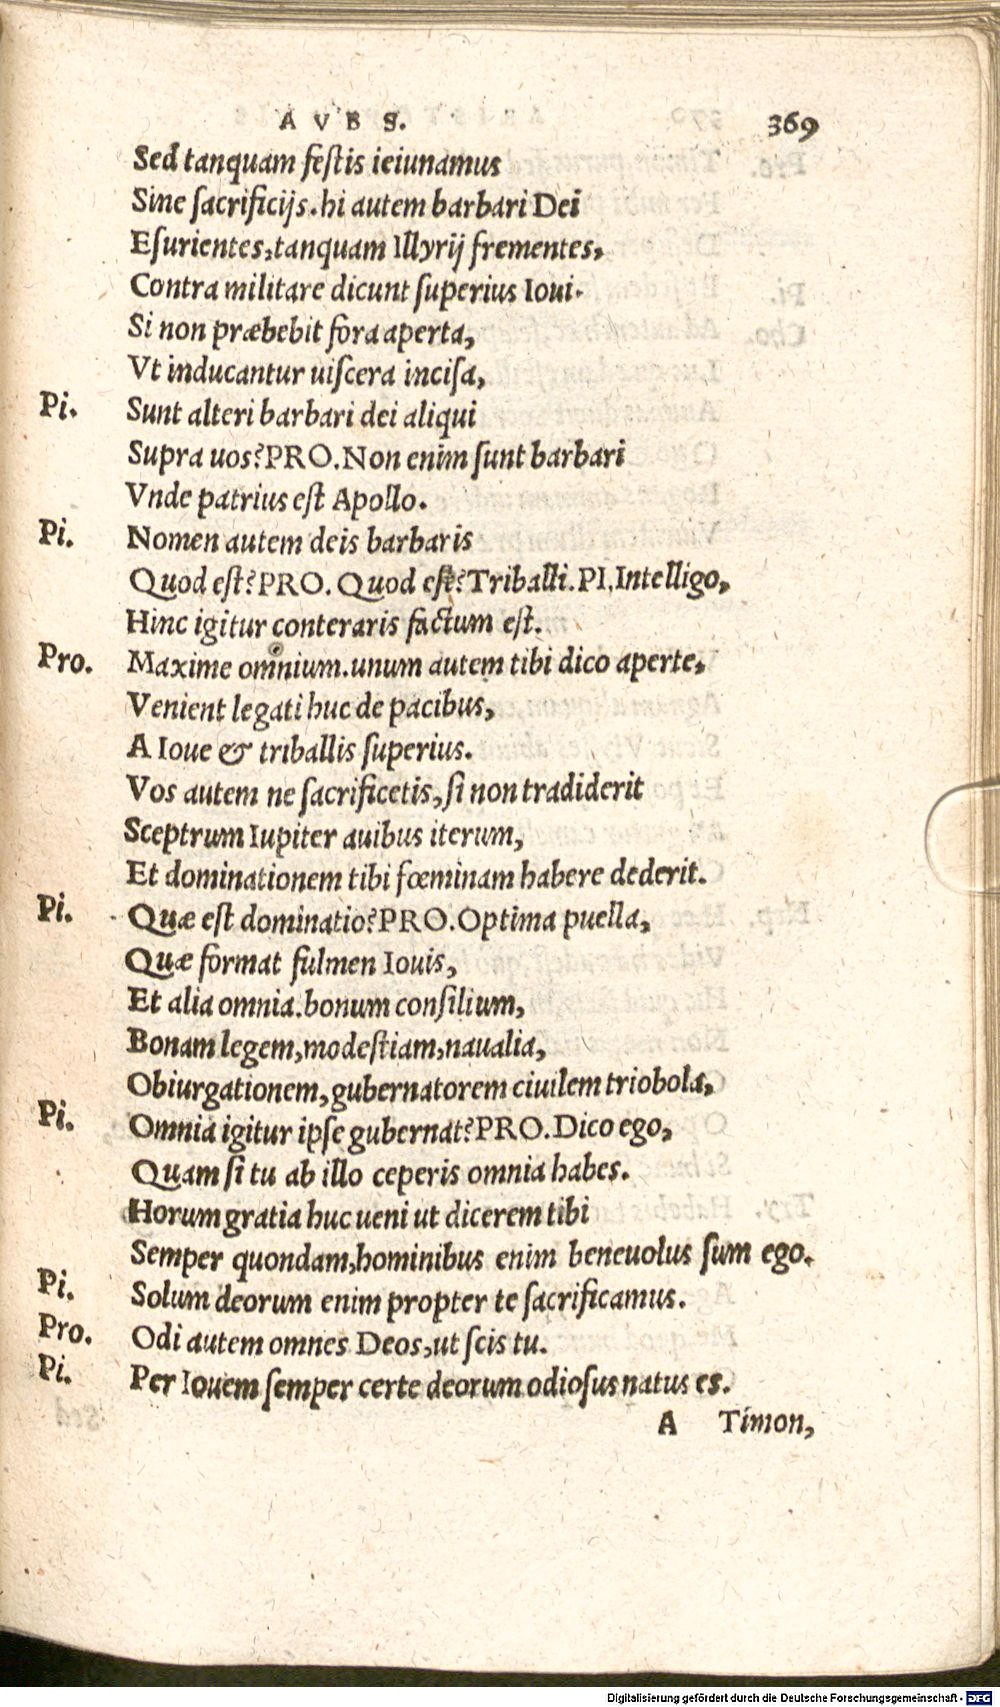 AVES. 369
Sed tanquam festis ieiunamus
Sine sacrificijs. hi autem barbari Dei
Esurientes, tanquam Illyrij frementes,
Contra militare dicunt superius Ioui.
Si non præbebit fora aperta,
Vt inducantur uiscera incisa,
Pi. Sunt alteri barbari dei aliqui
Supra uos? PRO. Non enim sunt barbari
Vnde patrius est Apollo.
Pi. Nomen autem deis barbaris
Quod est? PRO. Quod est? Triballi. PI. Intelligo,
Hinc igitur conteraris factum est.
Pro. Maxime omnium. unum autem tibi dico aperte,
Venient legati huc de pacibus,
A Ioue & triballis superius.
Vos autem ne sacrificetis, si non tradiderit
Sceptrum Iupiter auibus iterum,
Et dominationem tibi fœminam habere dederit.
Pi. Quæ est dominatio? PRO. Optima puella,
Quæ format fulmen Iouis,
Et alia omnia. bonum consilium,
Bonam legem, modestiam, naualia,
Obiurgationem, gubernatorem ciuilem triobola,
Pi. Omnia igitur ipse gubernat? PRO. Dico ego,
Quam si tu ab illo ceperis omnia habes.
Horum gratia huc ueni ut dicerem tibi
Semper quondam, hominibus enim beneuolus sum ego.
Pi. Solum deorum enim propter te sacrificamus.
Pro. Odi autem omnes Deos, ut scis tu.
Pi. Per Iouem semper certe deorum odiosus natus es.
A Timon,
Digitalisierung gefördert durch die Deutsche Forschungsgemeinschaft - DFG